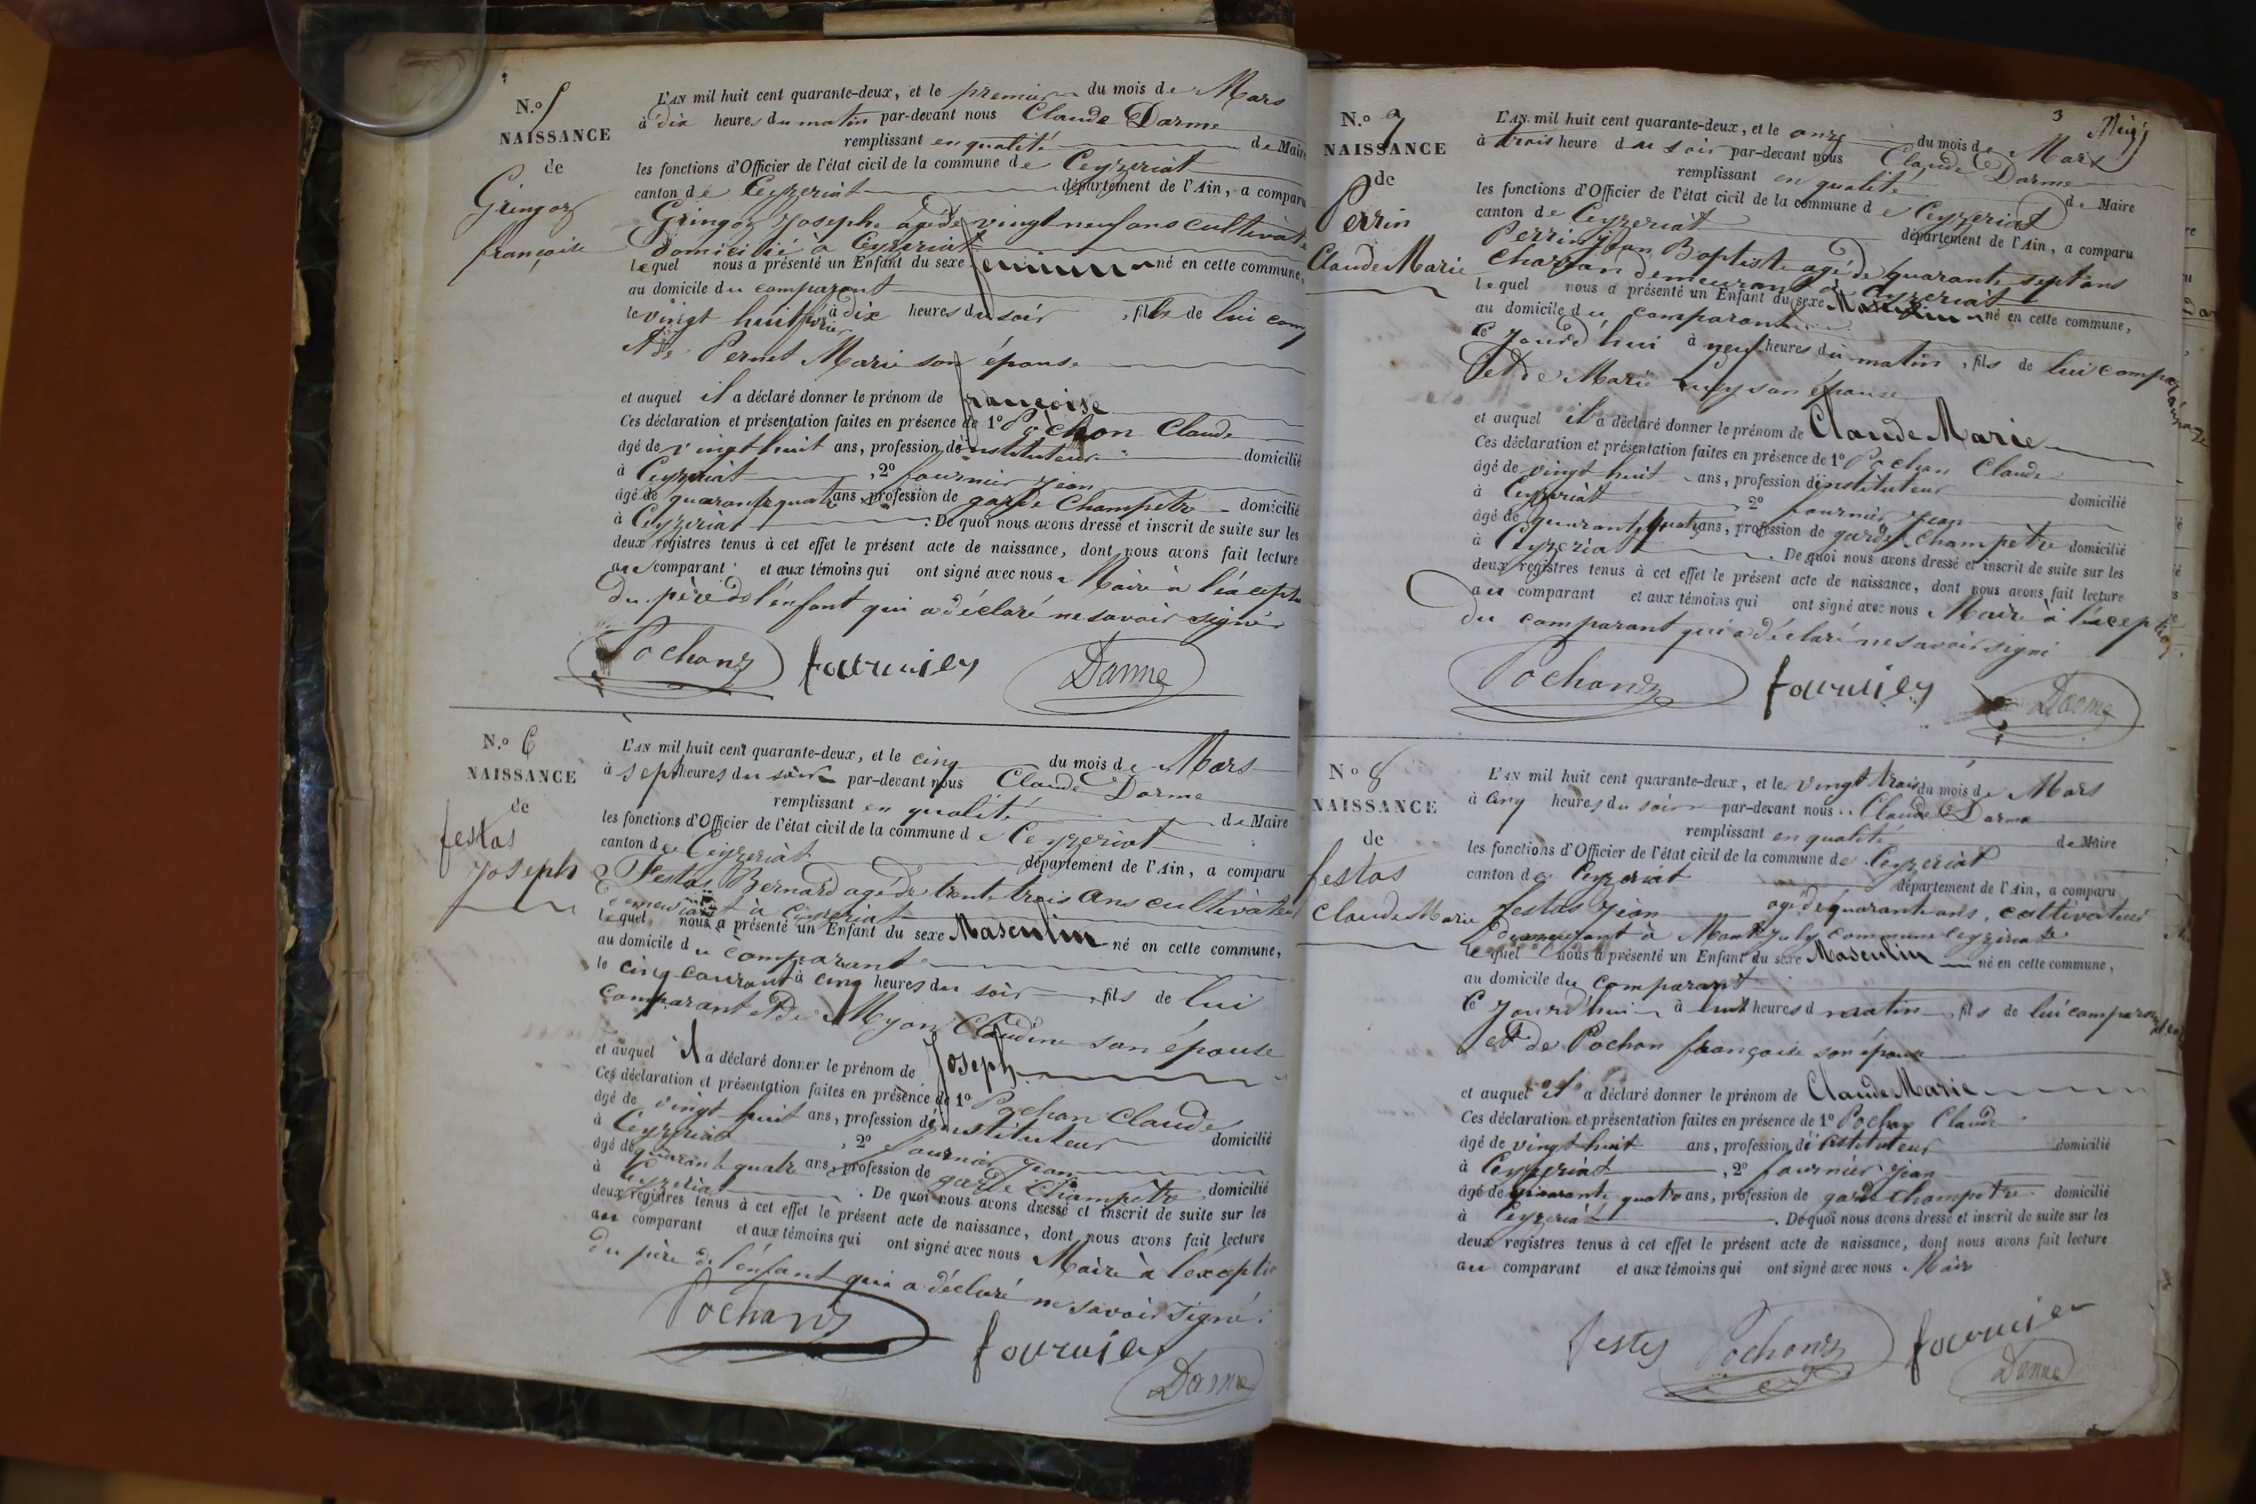 N.º 5
NAISSANCE
de
Gringoz
françoise
L'AN mil huit cent quarante-deux, et le premier du mois de Mars
à dix heures du matin par-devant nous Claude Darme
remplissant en qualité de Maire
les fonctions d'Officier de l'état civil de la commune de Ceyzeriat
canton de Ceyzeriat département de l'Ain, a comparu
Gringoz Joseph agé de vingt neuf ans cultivat
domicilié à Ceyzeriat
lequel nous a présenté un Enfant du sexe feminin né en cette commune,
au domicile du comparant
le vingt huit fevrier à dix heures du soir, fille de lui comp
et de Pernet Marie son épouse
et auquel il a déclaré donner le prénom de françoise
Ces déclaration et présentation faites en présence de 1º Pochon Claude
âgé de vingt huit ans, profession de instituteur domicilié
à Ceyzeriat, 2º fournier jean
âgé de quarante quatre ans, profession de garde Champêtre domicilié
à Ceyzeriat. De quoi nous avons dressé et inscrit de suite sur les
deux registres tenus à cet effet le présent acte de naissance, dont nous avons fait lecture
au comparant et aux témoins qui ont signé avec nous Maire à l'écept
du père de l'enfant qui a déclaré ne savoir signér
Pochon fournier Darme
N.º 6
NAISSANCE
de
festas
Joseph
L'AN mil huit cent quarante-deux, et le cinq du mois de Mars
à sept heures du soir par-devant nous Claude Darme
remplissant en qualité de Maire
les fonctions d'Officier de l'état civil de la commune de Ceyzeriat
canton de Ceyzeriat département de l'Ain, a comparu
Festas Bernard agé de trente trois ans cultivateu
demeurant à Ceyzeriat
lequel nous a présenté un Enfant du sexe Masculin né en cette commune,
au domicile du comparant
le cinq courant à cinq heures du soir, fils de lui
comparant et de Myon Claudine son épouse
et auquel il a déclaré donner le prénom de Joseph
Ces déclaration et présentation faites en présence de 1º Pochon Claude
âgé de vingt huit ans, profession de instituteur domicilié
à Ceyzeriat, 2º fournier jean
âgé de quarante quatre ans, profession de garde Champêtre domicilié
à Ceyzeriat. De quoi nous avons dressé et inscrit de suite sur les
deux registres tenus à cet effet le présent acte de naissance, dont nous avons fait lecture
au comparant et aux témoins qui ont signé avec nous Maire à l'exceptio
du père de l'enfant qui a déclaré ne savoir signé.
Pochon fournier
Darme
3
N.º 7
NAISSANCE
de
Perrin
Claude Marie
L'AN mil huit cent quarante-deux, et le onze du mois de Mars
à trois heure du soir par-devant nous Claude Darme
remplissant en qualité de Maire
les fonctions d'Officier de l'état civil de la commune de Ceyzeriat
canton de Ceyzeriat département de l'Ain, a comparu
Perrin jean Baptiste agé de quarante sept ans
Charron demeurant à Ceyzeriat
lequel nous a présenté un Enfant du sexe Masculin né en cette commune,
au domicile du comparant
Ce Jourd'hui à neuf heures du matin, fils de lui comparant
et de Marie son épouse
et auquel il a déclaré donner le prénom de Claude Marie
Ces déclaration et présentation faites en présence de 1º Pochon Claude
âgé de vingt huit ans, profession d'instituteur domicilié
à Ceyzeriat 2º fournier jean
âgé de quarante quatre ans, profession de garde Champêtre domicilié
à Ceyzeriat. De quoi nous avons dressé et inscrit de suite sur les
deux registres tenus à cet effet le présent acte de naissance, dont nous avons fait lecture
au comparant et aux témoins qui ont signé avec nous Maire à l'éception
du comparant qui a déclaré ne savoir signé
Pochon fournier Darme
Nº 8
NAISSANCE
de
festas
Claude Marie
L'AN mil huit cent quarante-deux, et le vingt trois du mois de Mars
à cinq heures du soir par-devant nous Claude Darme
remplissant en qualité de Maire
les fonctions d'Officier de l'état civil de la commune de Ceyzeriat
canton de Ceyzeriat département de l'Ain, a comparu
festas jean agé de quarante ans, cultivateur
demeurant à Mont July commune Ceyzeriat
lequel nous a présenté un Enfant du sexe Masculin né en cette commune,
au domicile du comparant
Ce Jourd'hui à huit heures d matin fils de lui comparant
et de Pochon françoise son épouse
et auquel il a déclaré donner le prénom de Claude Marie
Ces déclaration et présentation faites en présence de 1º Pochon Claude
âgé de vingt huit ans, profession d'istituteur domicilié
à Ceyzeriat, 2º fournier jean
âgé de quarante quatre ans, profession de garde champetre domicilié
à Ceyzeriat. De quoi nous avons dressé et inscrit de suite sur les
deux registres tenus à cet effet le présent acte de naissance, dont nous avons fait lecture
au comparant et aux témoins qui ont signé avec nous Maire
festas Pochon fournier
Darme